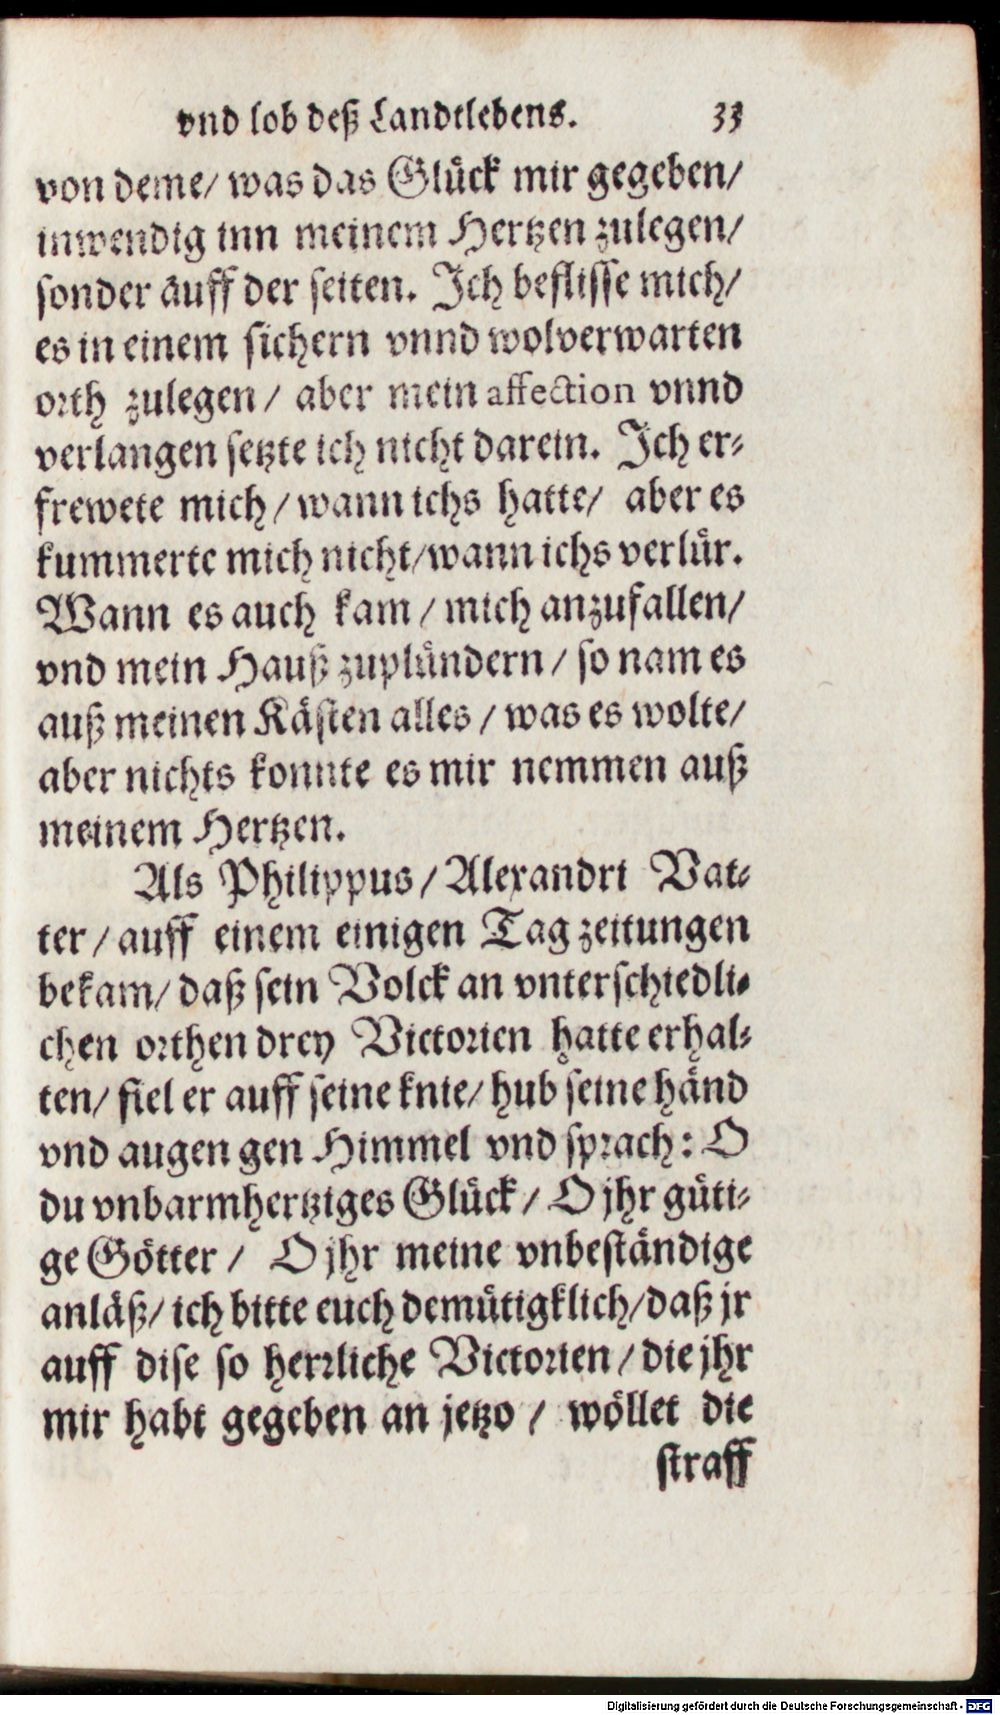 vnd lob deß Landtlebens. 33
von deme/ was das Glück mir gegeben/
inwendig inn meinem Hertzen zulegen/
sonder auff der seiten. Ich beflisse mich/
es in einem sichern vnnd wolverwarten
orth zulegen/ aber mein affection vnnd
verlangen setzte ich nicht darein. Ich er-
frewete mich/ wann ichs hatte/ aber es
kummerte mich nicht/ wann ichs verlür.
Wann es auch kam/ mich anzufallen/
vnd mein Hauß zuplündern/ so nam es
auß meinen Kästen alles/ was es wolte/
aber nichts konnte es mir nemmen auß
meinem Hertzen.
Als Philippus/ Alexandri Vat-
ter/ auff einem einigen Tag zeitungen
bekam/ daß sein Volck an vnterschiedli-
chen orthen drey Victorien hatte erhal-
ten/ fiel er auff seine knie/ hub seine händ
vnd augen gen Himmel vnd sprach: O
du vnbarmhertziges Glück/ O jhr güti-
ge Götter/ O jhr meine vnbeständige
anläß/ ich bitte euch demütigklich/ daß jr
auff dise so herrliche Victorien/ die jhr
mir habt gegeben an jetzo/ wöllet die
straff
Digitalisierung gefördert durch die Deutsche Forschungsgemeinschaft - DFG